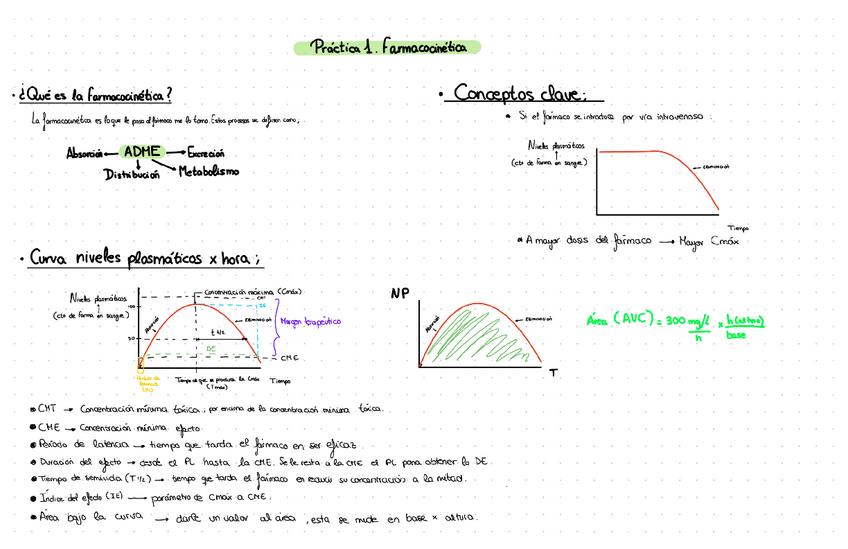 Práctica 1. Farmacocinética
· ¿Qué es la farmacocinética?
La farmacocinética es lo que le pasa al fármaco me lo tomo. Estos procesos se definen como;
Absorción ADME Excreción
Distribución Metabolismo
· Conceptos clave;
Si el fármaco se introduce por vía intravenosa:
Niveles plasmáticos
(ctd de forma en sangre)
eliminación
Tiempo
A mayor dosis del fármaco → Mayor Cmáx
· Curva niveles plasmáticos x hora;
Concentración máxima (Cmáx)
CMT
Niveles plasmáticos
(ctd de forma en sangre)
100
IE
Absorción
Eliminación
Margen terapéutico
t 1/2
50
DE
CME
Período de latencia (PL)
Tiempo al que se produce la Cmáx
(Tmáx)
Tiempo
NP
Absorción
Eliminación
T
Área (AVC) = 300 mg/l / h x h(altura) / base
CMT → Concentración mínima tóxica; por encima de la concentración mínima tóxica.
CME → Concentración mínima efecto
Período de latencia → tiempo que tarda el fármaco en ser eficaz.
Duración del efecto → desde el PL hasta la CME. Se le resta a la CME el PL para obtener la DE.
Tiempo de semivida (T 1/2) → tiempo que tarda el fármaco en reducir su concentración a la mitad.
Índice del efecto (IE) → parámetro de Cmáx a CME.
Área bajo la curva → darle un valor al área, esta se mide en base x altura.